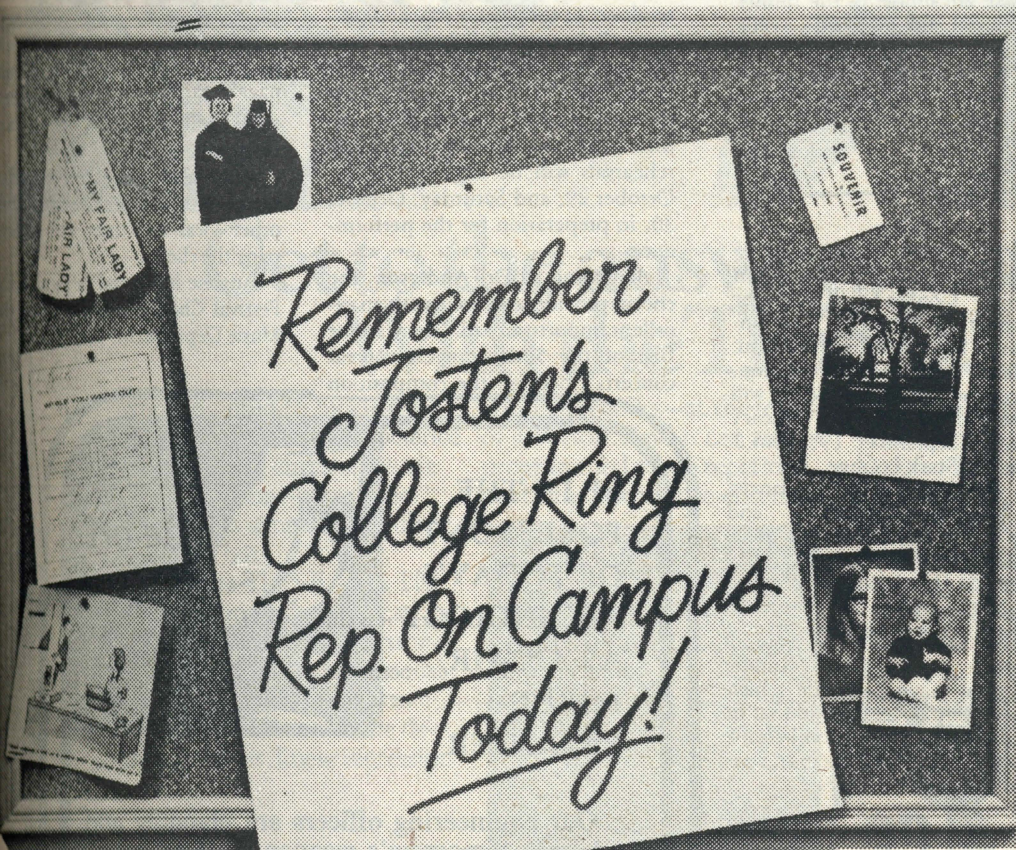 "MY FAIR LADY"
FAIR LADY"
SOUVENIR
WHILE YOU WERE OUT
Remember
Josten's
College Ring
Rep. On Campus
Today!